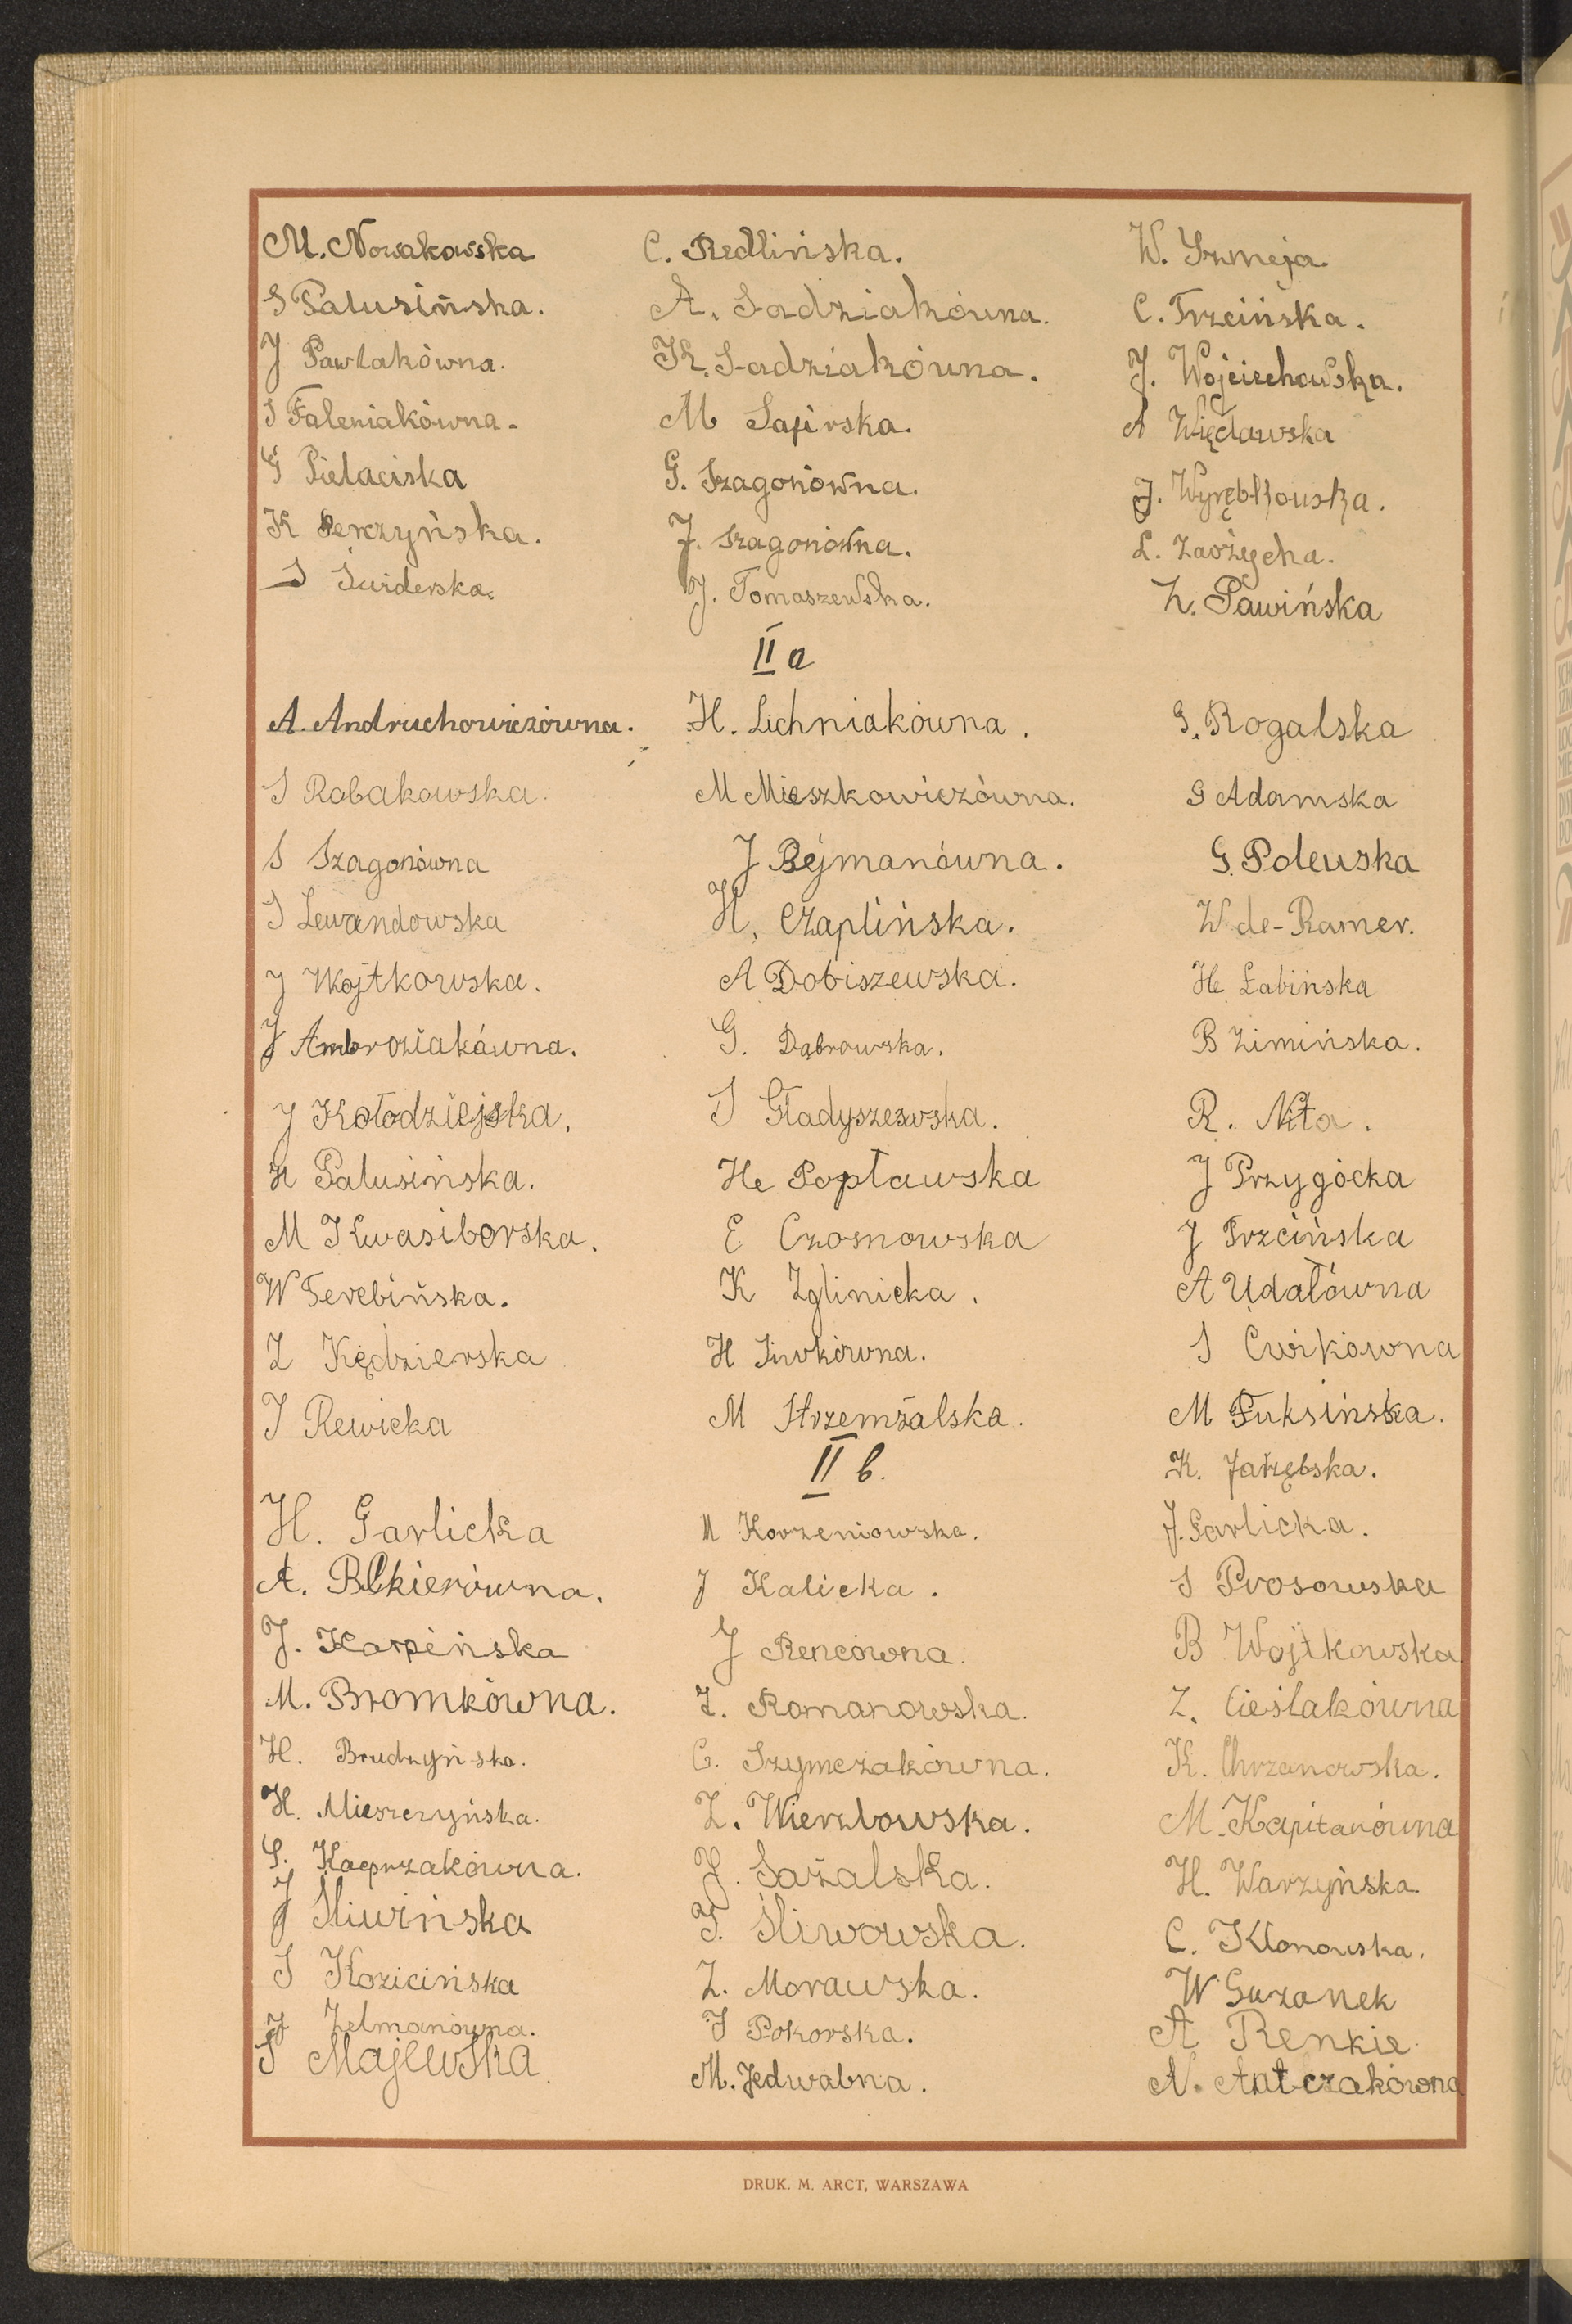 M. Nowakowska C. Redlińska. W. Szmeja.
S Palusińska. A. Sadziakówna. C. Trzcińska.
J Pawlakówna. K. Sadziakówna. J. Wojciechowska.
S Faleniakówna. M Sapirska. A Więcławska
G Pielaciska G. Szagonówna. J. Wyrębkowska.
K Perzyńska. J. Szagonówna. L. Zaożycha.
S Świderska. J. Tomaszewska. Z. Pawińska
II a
A. Andruchowiczówna. H. Lichniakówna. G. Rogalska
S Robakowska. M Mieszkowiczówna. G Adamska
S Szagonówna J Rejmanówna. G. Polewska
S Lewandowska H. Czaplińska. W de-Ramer.
J Wojtkowska. A Dobiszewska. He Łabińska
J Ambroziakówna. G. Dąbrowska. B Zimińska.
J Kołodziejska. S Gładyszewska. R. Nita.
H Palusińska. He Popławska J Przygócka
M Kwasiborska. E Czosnowska J Trzcińska
W Terebińska. K Zglinicka. A Udałówna
Z Kędzierska H Siwkówna. S Ćwikówna
J Rewicka M Strzemżalska. M Fuksińska.
II b. K. Jarzębska.
H. Garlicka M Korzeniowska. J. Garlicka.
A. Balkierówna. J Kalicka. S Prosowska
J. Karpińska J Rencówna. B Wojtkowska
M. Bromkówna. Z. Romanowska. Z. Cieślakówna
H. Brudzyńska. G. Szymczakówna. K. Chrzanowska.
H. Mieszczyńska. Z. Wierzbowska. M. Kapitanówna
S. Kacprzakówna. J. Sażalska. H. Warzyńska
J Śliwińska T. Śliwowska. C. Klonowska.
S Kozicińska Z. Morawska. W Guzanek
J Zelmanówna. J Pokorska. A Renkie.
S Majewska. M. Jedwabna. N. Antczakówna
DRUK. M. ARCT, WARSZAWA